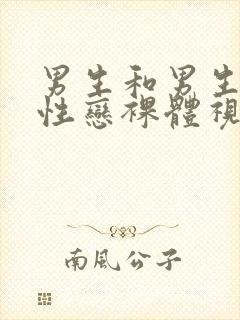 男生和男生
性戀裸體視
南風公子